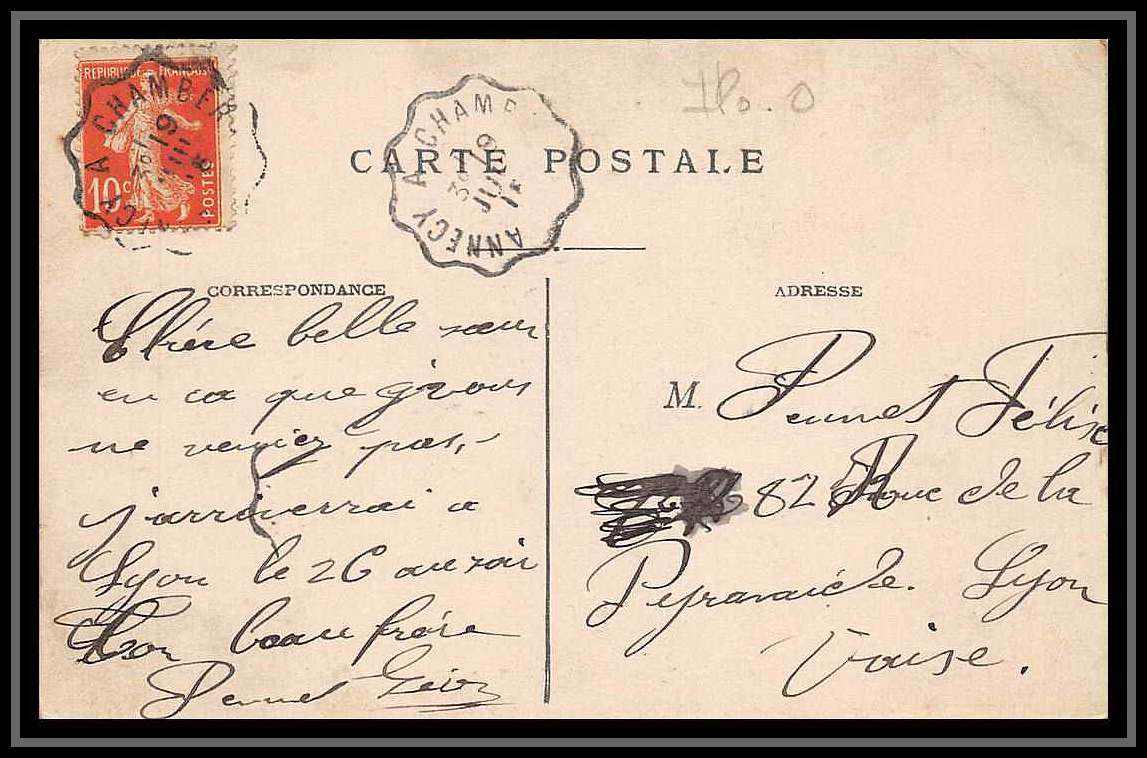 REPUBLIQUE FRANCAISE
10c POSTES
A CHAMBER
19
ANNECY A CHAMB
3e
19
JUIL
CARTE POSTALE
CORRESPONDANCE
ADRESSE
Chère belle sœur
en ca que je vous
ne veniez pas,
j'arriverrai a
Lyon le 26 au soir
Ton beau frère
Pernet Léon
M. Pernet Félise
82 Rue de la
Pyramide. Lyon
Vaise.